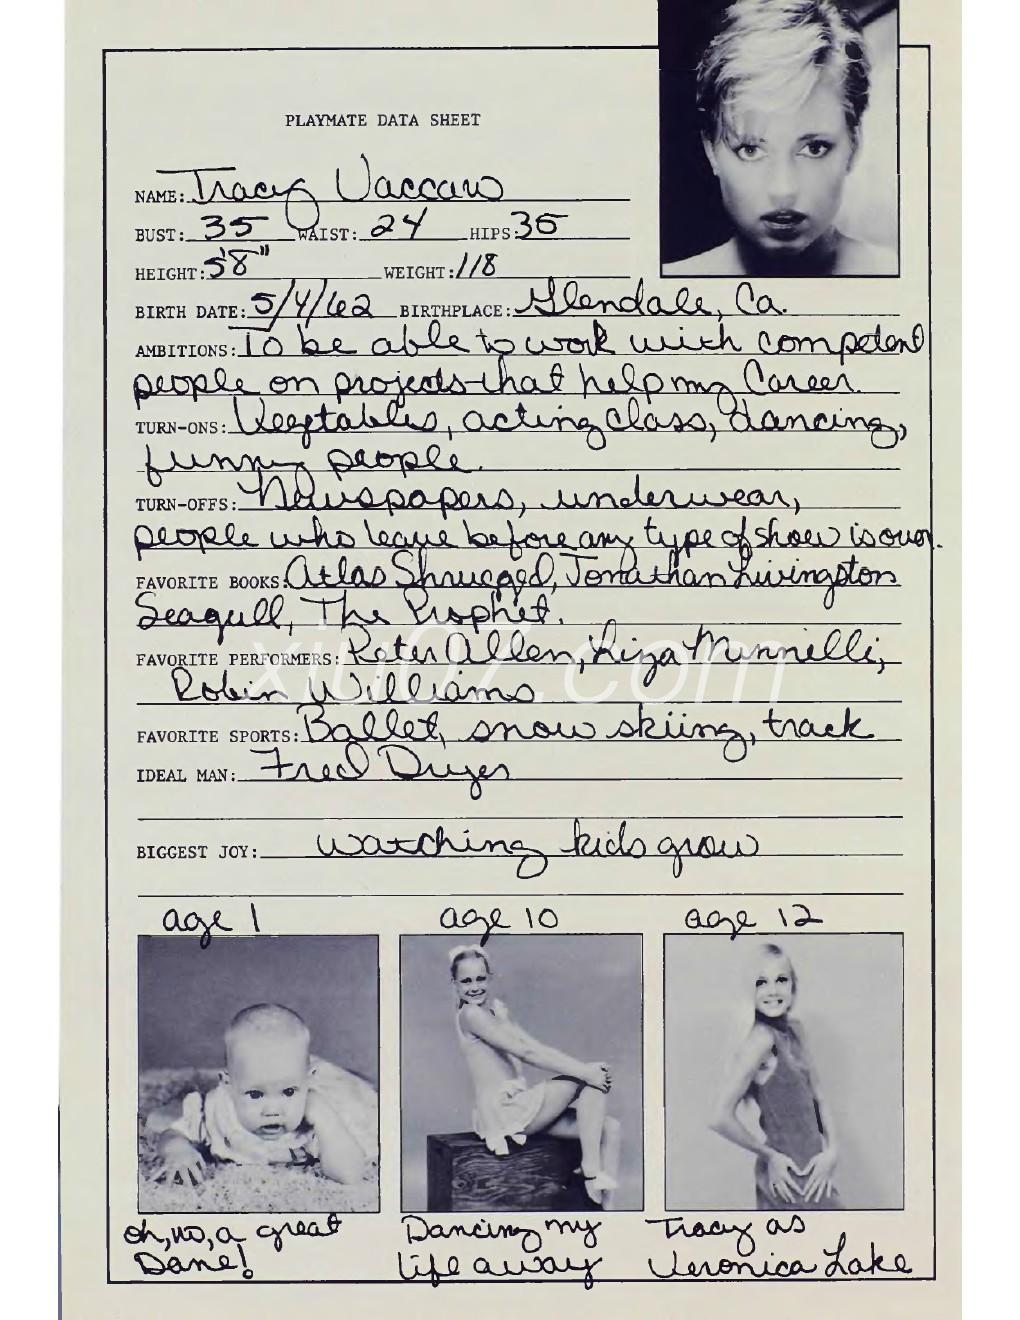 PLAYMATE DATA SHEET
NAME: Tracy Vaccaro
BUST: 35 WAIST: 24 HIPS: 35
HEIGHT: 5'8" WEIGHT: 118
BIRTH DATE: 5/4/62 BIRTHPLACE: Glendale, Ca.
AMBITIONS: To be able to work with competent
people on projects that help my Career.
TURN-ONS: Vegetables, acting class, dancing,
funny people.
TURN-OFFS: Newspapers, underwear,
people who leave before any type of show is over.
FAVORITE BOOKS: Atlas Shrugged, Jonathan Livingston
Seagull, The Prophet.
FAVORITE PERFORMERS: Peter Allen, Liza Minnelli,
Robin Williams
FAVORITE SPORTS: Ballet, snow skiing, track
IDEAL MAN: Fred Dryer
BIGGEST JOY: watching kids grow
age 1 age 10 age 12
oh, no, a great Dancing my Tracy as
Dane! life away Veronica Lake